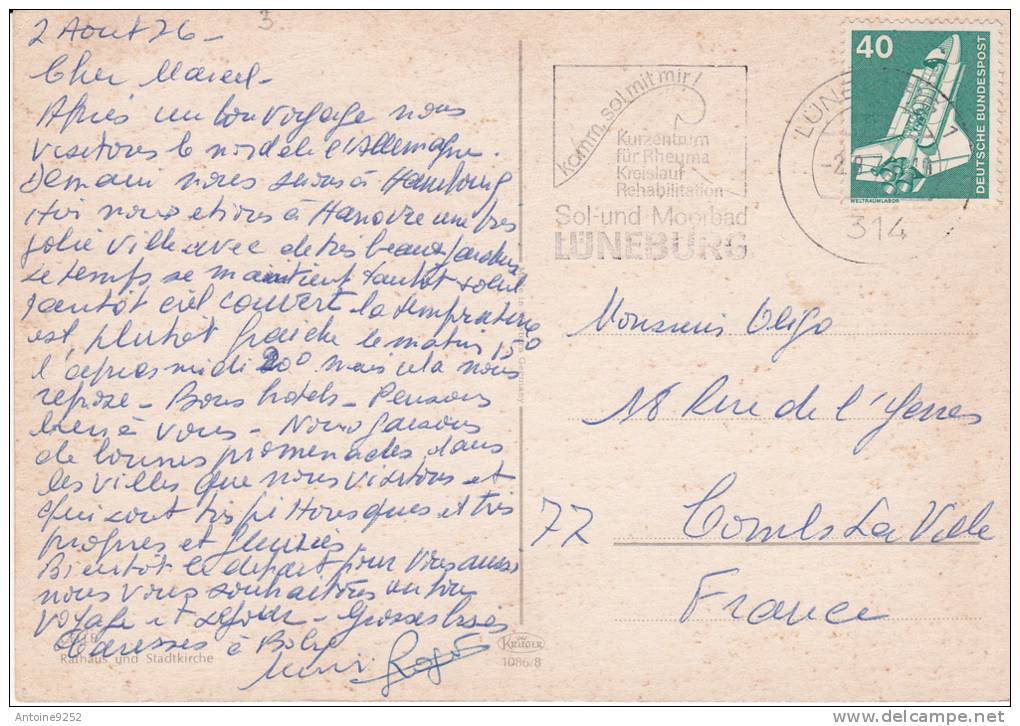 2 Aout 76 -
3
Cher Marcel -
Après un bon voyage nous
visitons le nord de l'Allemagne.
Demain nous serons à Hambourg
Hui nous etions à Hanovre une tres
jolie ville avec de tres beaux jardins
Le temps se maintient tantot soleil
tantôt ciel couvert la temprature
est plutôt fraiche le matin 15°
l'apres midi 20° mais cela nous
repose - Bons hotels - Pensons
bien à vous - Nous faisons
de bonnes promenades dans
les villes que nous visitons et
qui sont tres pittoresques et tres
propres et fleuries.
Bientôt le depart pour vous aussi
nous vous souhaitons un bon
voyage et sejour - Grosses bises
Caresses à
CELLE
Rathaus und Stadtkirche
KRÜGER
1086/8
komm, sol mit mir!
Kurzentrum
für Rheuma
Kreislauf
Rehabilitation
Sol- und Moorbad
LÜNEBURG
314
40
DEUTSCHE BUNDESPOST
WELTRAUMLABOR
Monsieur Oligo
18 Rue de l'Yerres
77 Combs La Ville
France
Antoine9252
www.delcampe.net